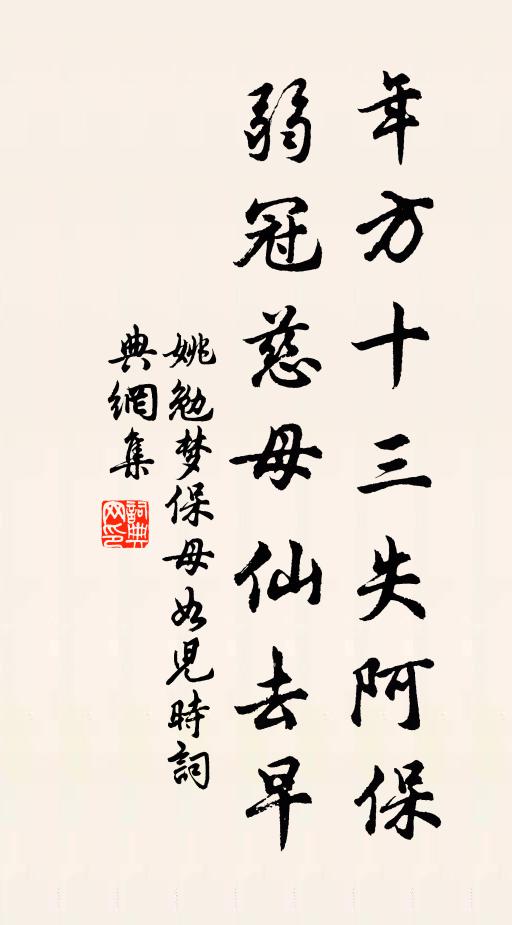 年方十三失阿保
弱冠慈母仙去早
姚勉梦保母如儿時詞
典網集
詞典网印